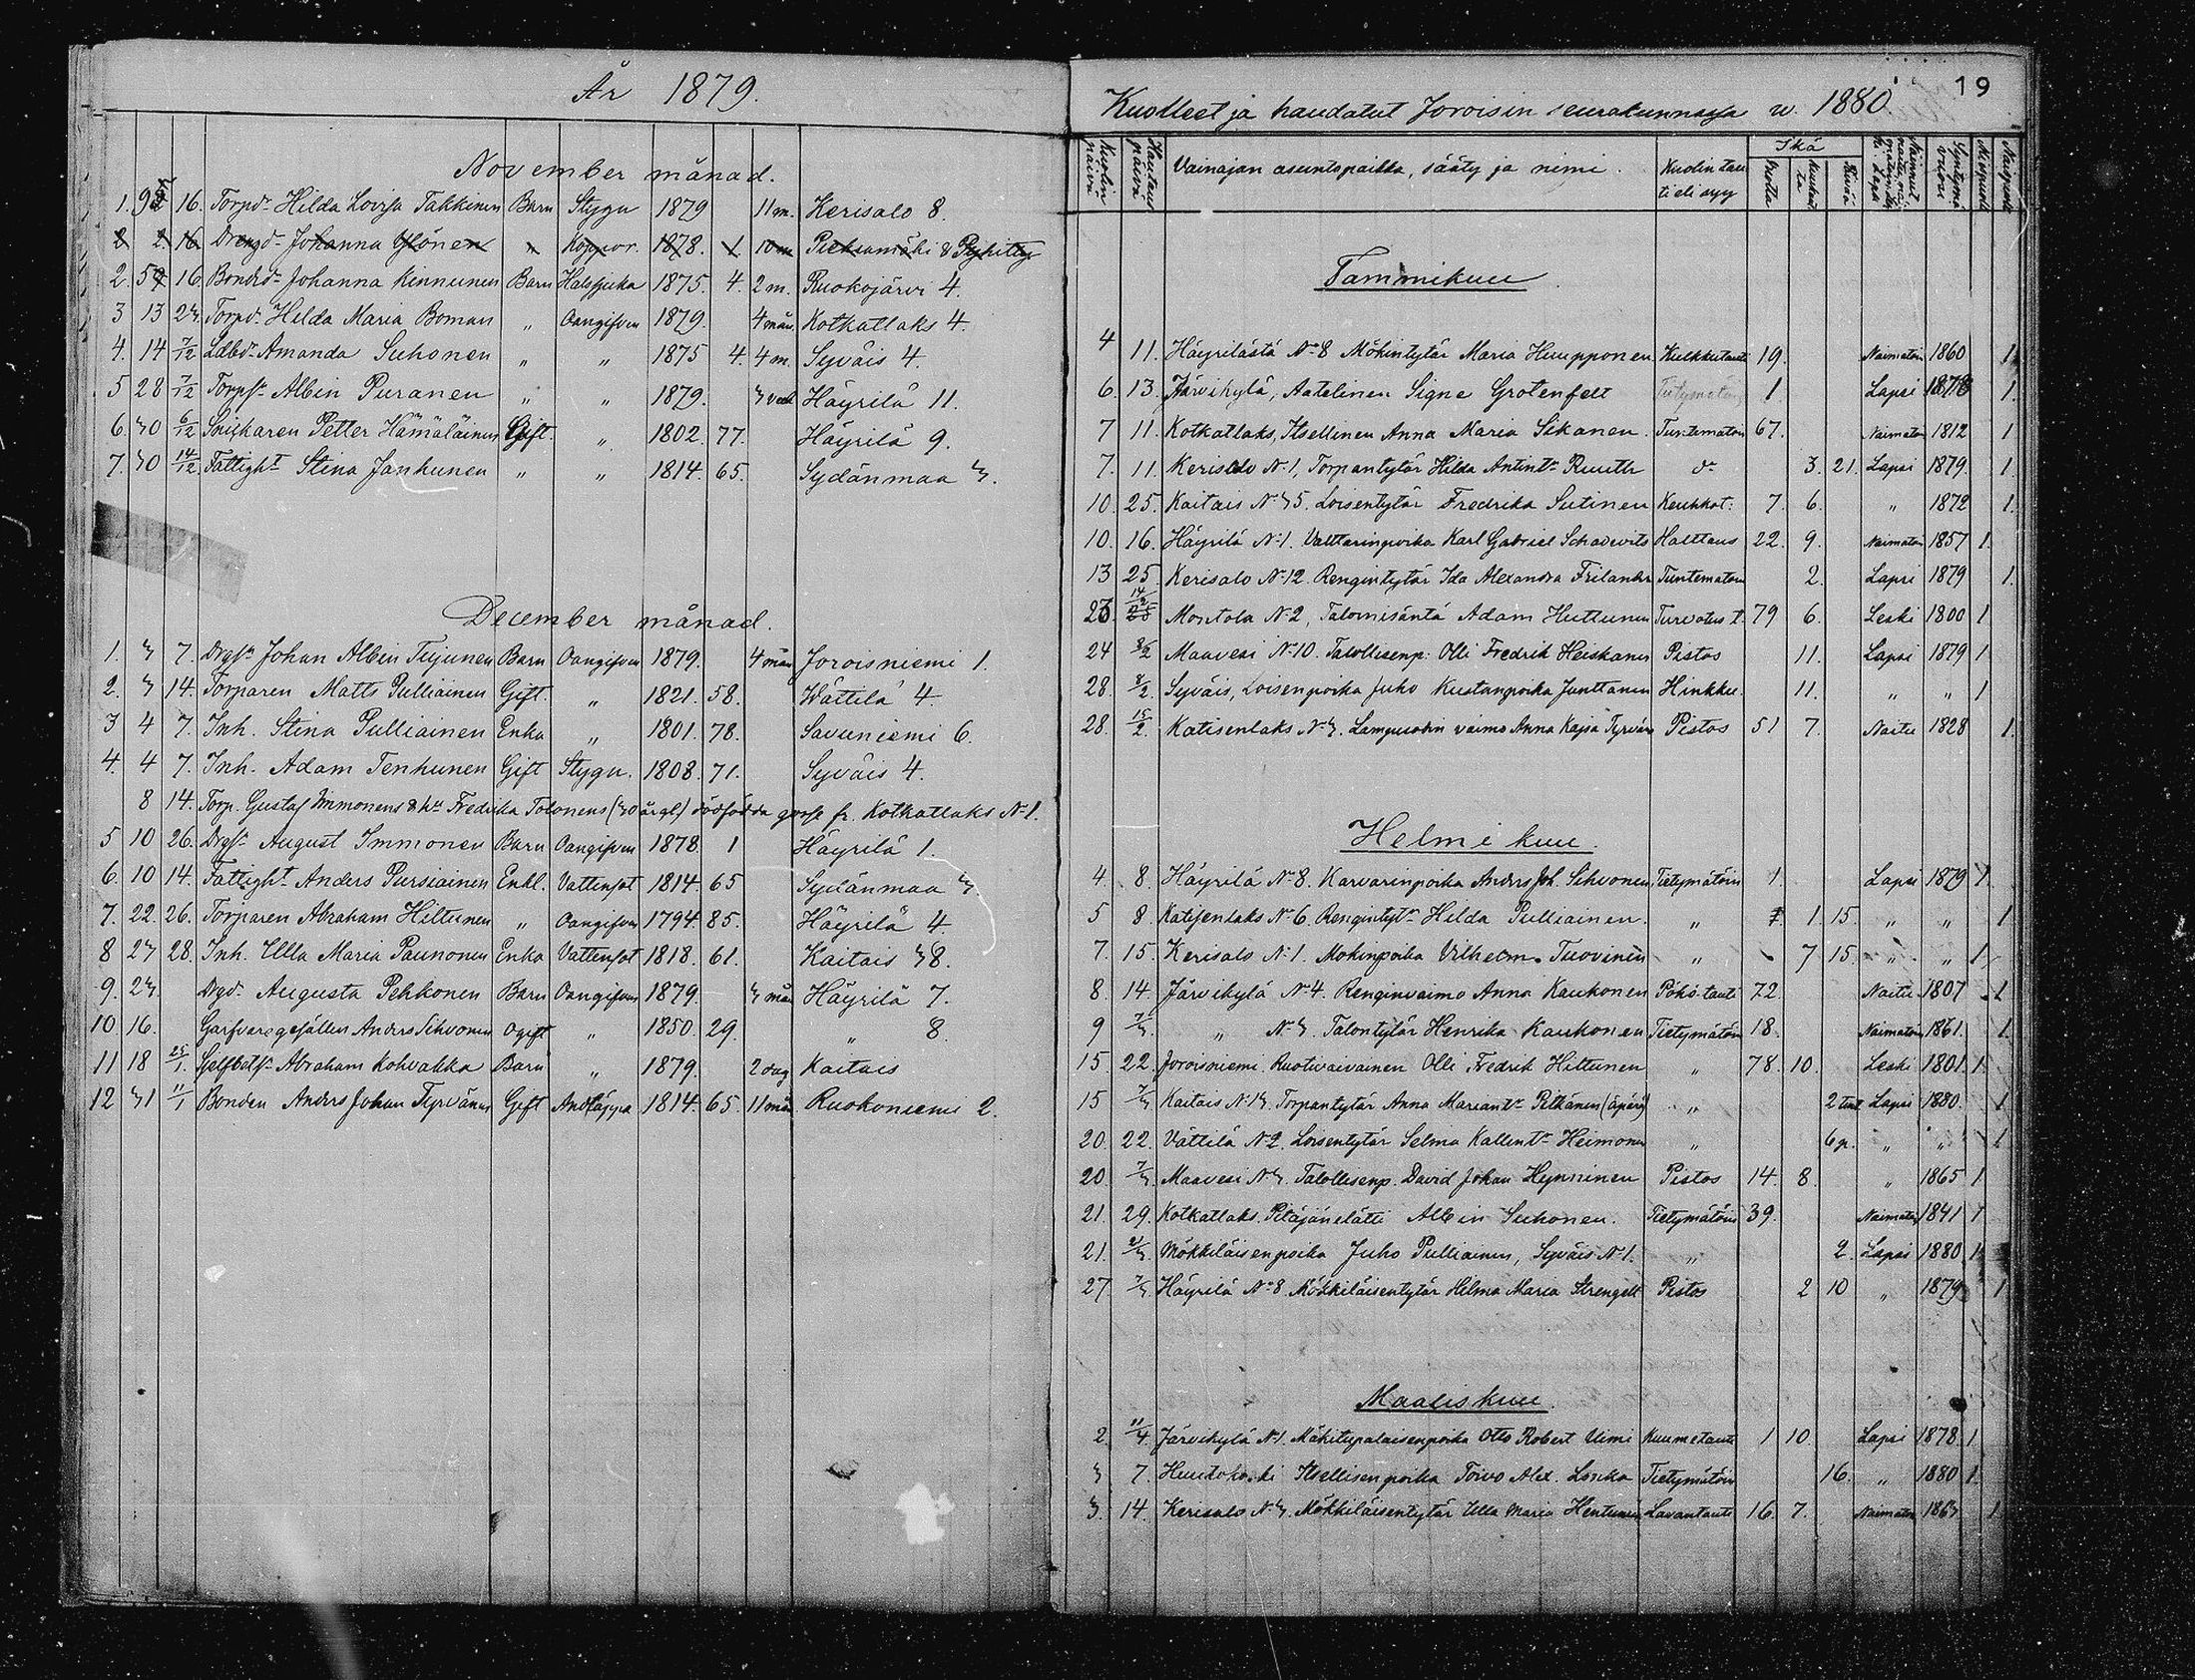 År 1879.
November månad.
1. 9 16. Torpdr Hilda Lovisa Takkinen Barn Stygn 1879 11 m. Kerisalo 8.
2 2 16 Drengdr Johanna Ylönen " Koppor. 1878. 1 10 m Pieksamäki
2. 5 16. Bondedr Johanna Kinnunen Barn Halssjuka 1875. 4. 2 m. Ruokojärvi 4.
3 13 23. Torpdr Hilda Maria Boman " Oangifven 1879. 4 mån. Kotkatlaks 4.
4. 14 7/12 Ldbdr Amanda Suhonen " " 1875 4. 4 m. Syväis 4.
5 28 7/12 Torpsn Albin Puranen " " 1879. 3 veck Häyrilä 11.
6. 30 6/12 Snickaren Petter Hämäläinen Gift. " 1802. 77. Häyrilä 9.
7. 30 14/12. Fattight Stina Janhunen " " 1814. 65. Sydänmaa 3.
December månad.
1. 3 7. Drgsn Johan Albin Tiijunen Barn Oangifven 1879. 4 mån Joroisniemi 1.
2. 3 14. Torparen Matts Pulliainen Gift. " 1821. 58. Wättilä 4.
3 4 7. Inh. Stina Pulliainen Enka " 1801. 78. Savuniemi 6.
4. 4 7. Inh. Adam Tenhunen Gift Stygn. 1808. 71. Syväis 4.
8 14. Torp. Gustaf Immonens & hu Fredrika Tolonens (30 årgl) dödfödda gosse fr. Kotkatlaks No 1.
5 10 26. Drgsn August Immonen Barn Oangifven 1878. 1 Häyrilä 1.
6. 10 14. Fattight Anders Pursiainen Enkl. Vattensot 1814. 65 Sydänmaa 3.
7. 22. 26. Torparen Abraham Hiltunen " Oangifven 1794. 85. Häyrilä 4.
8 23 28. Inh. Ulla Maria Paunonen Enka Vattensot 1818. 61. Kaitais 38.
9. 23. Drgdr Augusta Pekkonen Barn Oangifven 1879. 3 mån Häyrilä 7.
10 16. Garfvaregesällen Anders Sihvonen Ogift " 1850. 29. " 8.
11 18 25/1. Abraham Kohvakka Barn " 1879. 2 dag Kaitais
12 31 11/1 Bonden Anders Johan Tyrvänen Gift Andtäppa 1814. 65. 11 mån Ruokoniemi 2.
19
Kuolleet ja haudatut Joroisin seurakunnassa w. 1880.
Kuolin päivä Hautaus päivä Vainajan asuntopaikka, sääty ja nimi. Kuolin tauti eli syy Ikä Vuotta Kuukautta Päivä Syntymä vuosi Miespuoli Naispuoli
Tammikuu
4 11. Häyrilästä No 8 Mökintytär Maria Huupponen Kulkkutauti 19. Naimaton 1860 1.
6. 13. Järvikylä, Aatelinen Signe Grotenfelt Tietymätöin 1. Lapsi 1878 1.
7 11. Kotkatlaks, Itsellinen Anna Maria Sikanen. Tuntematon 67. Naimaton 1812 1
7. 11. Kerisalo No 1, Torpantytär Hilda Antintr Ruuth do 3. 21. Lapsi 1879. 1.
10. 25. Kaitais No 35. Loisentytär Fredrika Sutinen Keuhkot: 7. 6. " 1872 1.
10. 16. Häyrilä No 1. Valttarinpoika Karl Gabriel Schadevits Halttaus 22. 9. Naimaton 1857 1.
13 25. Kerisalo No 12. Rengintytär Ida Alexandra Frilander Tuntematon 2. Lapsi 1879 1.
23. 14/2 Montola No 2, Talonisäntä Adam Huttunen Turvotus t. 79 6. Leski 1800 1
24 8/2 Maavesi No 10. Talollisenp: Olli Fredrik Heiskanen Pistos 11. Lapsi 1879 1
28. 8/2. Syväis, Loisenpoika Juho Kustaanpoika Junttanen Hinkku. 11. " " 1
28. 15/2. Katisenlaks No 3. Lampuodin vaimo Anna Kajsa Tyrvän Pistos 51 7. Naitu 1828 1.
Helmikuu.
4. 8. Häyrilä No 8. Karvarinpoika Anders Joh. Sihvonen Tietymätöin 1. Lapsi 1879 1.
5 8. Katisenlaks No 6. Rengintytr Hilda Pulliainen. " 1. 15. " " 1
7. 15. Kerisalo No 1. Mökinpoika Vilhelm Tuovinen " 7 15. " " 1.
8. 14. Järvikylä No 4. Renginvaimo Anna Kaukonen Pöhö-tauti 72. Naitu 1807 1
9 7/3. " No 3. Talontytär Henrika Kaukonen Tietymätöin 18. Naimaton 1861. 1.
15 22. Joroisniemi. Ruotivaivainen Olli Fredrik Hiltunen " 78. 10. Leski 1801. 1.
15 7/3. Kaitais No 13. Torpantytär Anna Mariantr Pitkänen (äpärä) " 2 tunt. Lapsi 1880. 1
20. 22. Vättilä No 2. Loisentytär Selma Kallentr Heimonen " 6 p. " " 1
20. 7/3. Maavesi No 3. Talollisenp. David Johan Hynninen Pistos 14. 8. " 1865 1
21. 29. Kotkatlaks. Pitäjänelätti Albin Suhonen. Tietymätöin 39. Naimaton 1841 1
21. 21/3. Mökkiläisenpoika Juho Pulliainen, Syväis No 1. " 2. Lapsi 1880. 1.
27 7/3. Häyrilä No 8. Mökkiläisentytär Helma Maria Strengell Pistos 2 10 " 1879 1
Maaliskuu.
2. 11/4. Järvikylä No 1. Mäkitupalaisenpoika Otto Robert Uimi Kuumetauti 1 10. Lapsi 1878. 1.
3 7. Huutokoski Itsellisenpoika Toivo Alex. Tietymätöin 16. " 1880 1.
3. 14. Kerisalo No 3. Mökkiläisentytär Ulla Maria Hentunen Lavantauti 16. 7. Naimaton 1863 1